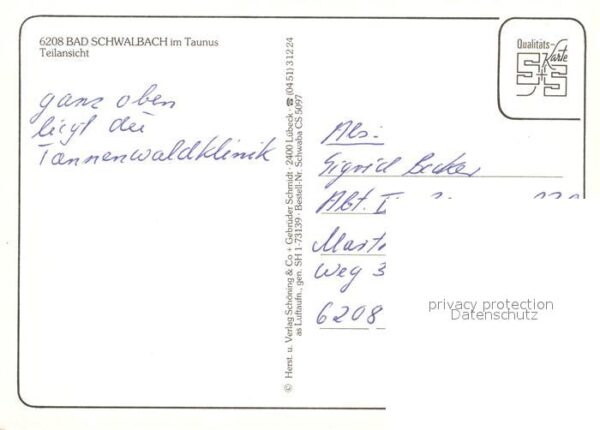 6208 BAD SCHWALBACH im Taunus
Teilansicht
Qualitäts-
Karte
S+S
ganz oben
liegt die
Tannenwaldklinik
© Herst. u. Verlag Schöning & Co + Gebrüder Schmidt · 2400 Lübeck · ☎ (04 51) 3 12 24
as Luftaufn., gen. SH 1-73139 · Bestell-Nr. Schwaba CS 5097
Abs.:
Sigrid Becker
Abt.
Weg 3
6208
privacy protection
Datenschutz